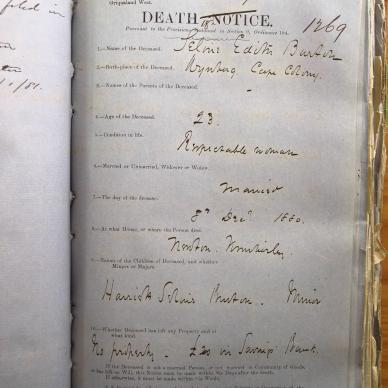 filed in
Griqualand West.
DEATH NOTICE.
1269
Pursuant to the Provisions contained in Section 9, Ordinance 104.
1.—Name of the Deceased.
Selvie Edith Burton
2.—Birth-place of the Deceased.
Wynberg Cape Colony.
3.—Names of the Parents of the Deceased.
4.—Age of the Deceased.
23.
5.—Condition in life.
Respectable woman
6.—Married or Unmarried, Widower or Widow.
Married
7.—The day of the decease.
8th Decr 1880.
8.—At what House, or where the Person died.
Newton. Kimberley.
9.—Names of the Children of Deceased, and whether
Minors or Majors.
Burton. Minor
10.—Whether Deceased has left any Property and of
what kind.
No property. in Savings Bank.
If the Deceased is not a married Person, or not married in Community of Goods,